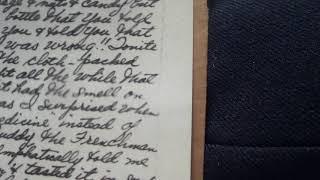 & nots & candy but
bottle that you told
you & told you that
was wrong!! Tonite
the cloth-packed
at all the while that
t had the smell on
as I surprised when
edicine instead of
uddy the Frenchman
mphatically told me
& tasted it in